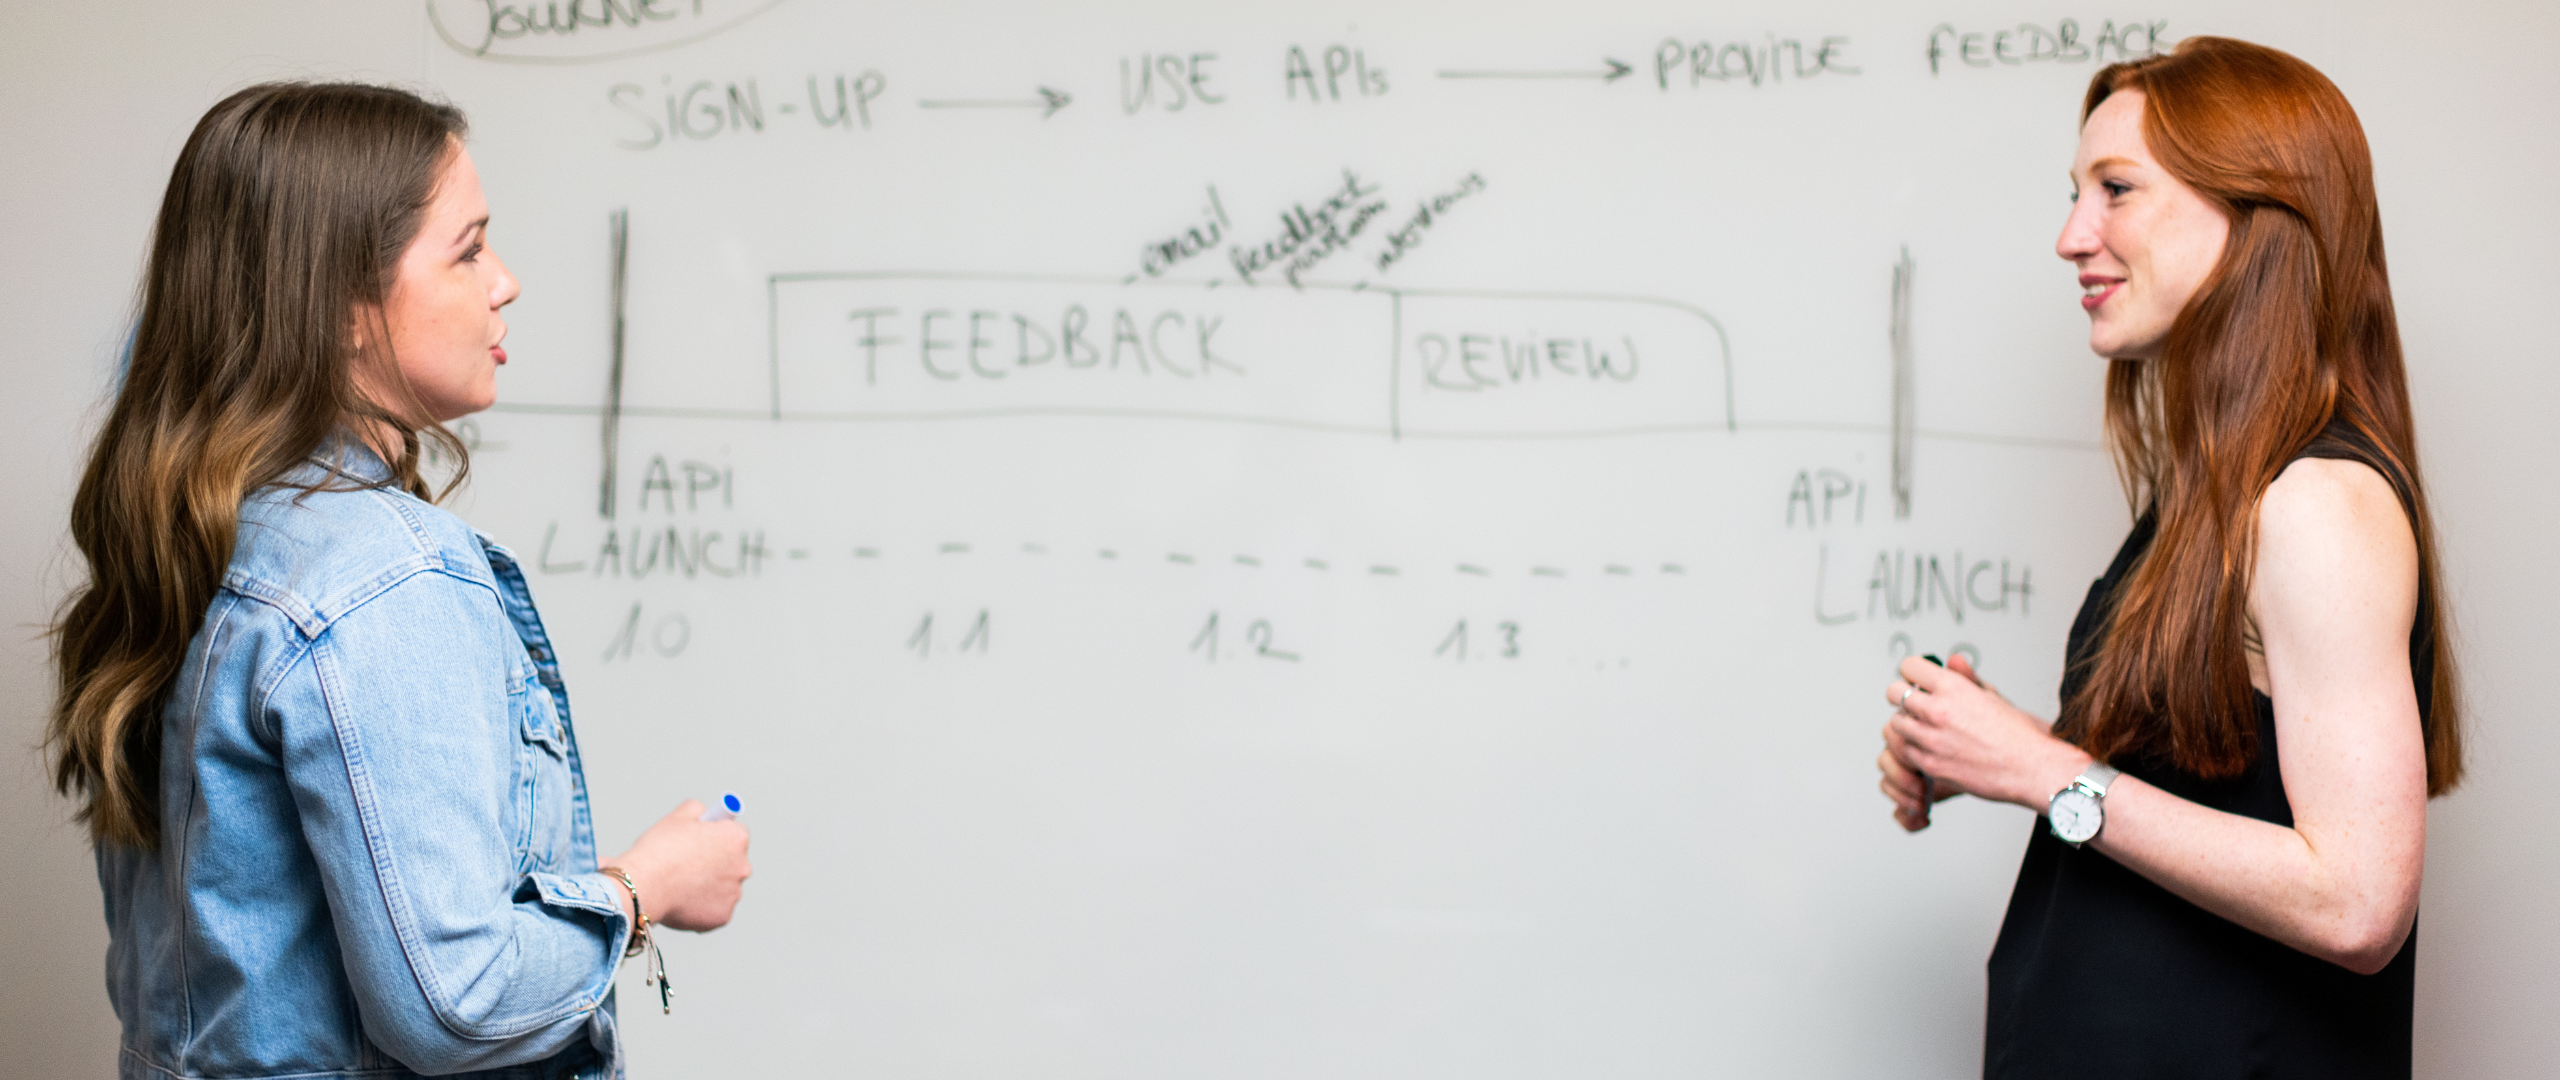 JOURNEY
SIGN-UP → USE APIs → PROVIDE FEEDBACK
email
feedback
platform
interviews
FEEDBACK
REVIEW
API
LAUNCH
1.0
1.1
1.2
1.3 ...
API
LAUNCH
2.0